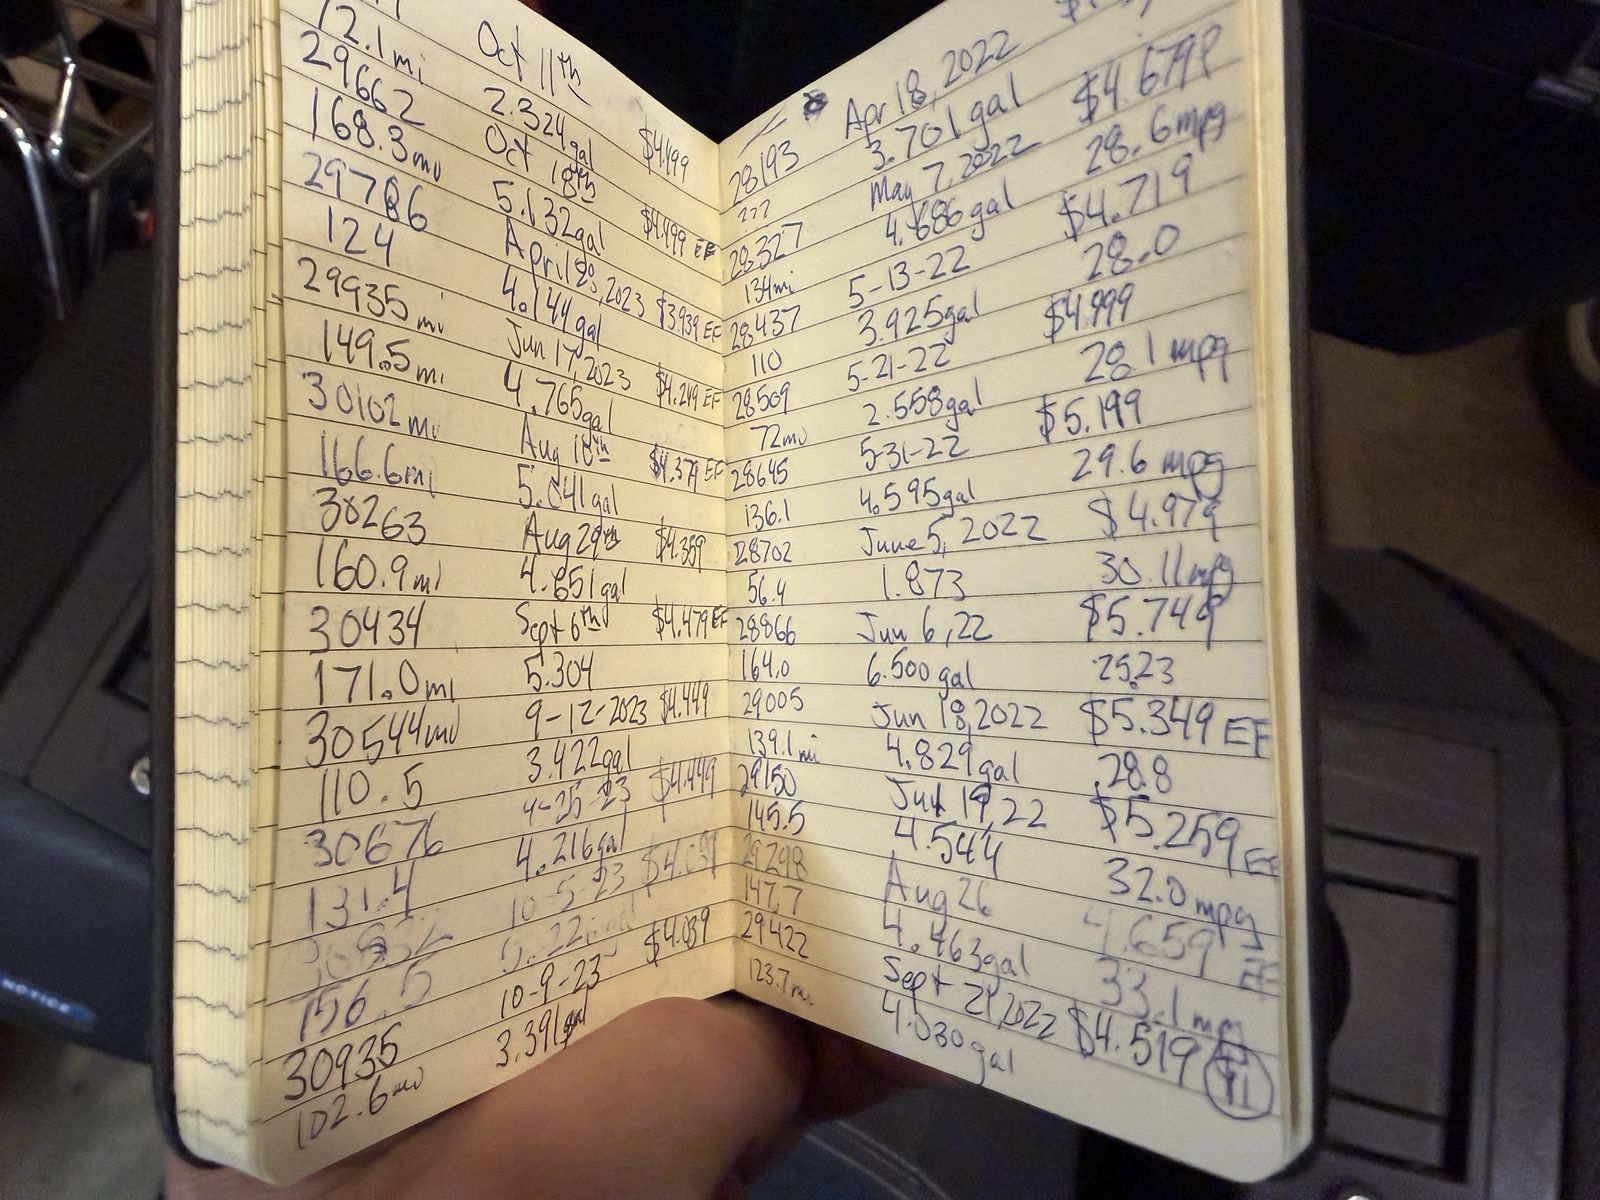 72.1mi Oct 11th
29662 2.324gal $4.499
168.3mi Oct 18th
29786 5.132gal $4.499 EF
124 April 28, 2023
29935mi 4.144gal $3.939 EF
149.5mi Jun 17, 2023
30102mi 4.765gal $4.249 EF
166.6mi Aug 18th
30263 5.041gal $4.379 EF
160.9mi Aug 29th
30434 4.651gal $4.359
171.0mi Sept 6th
30544mi 5.304 $4.479 EF
110.5 9-12-2023
30676 3.422gal $4.449
131.4 9-25-23
4.216gal $4.449
156.5 10-5-23
30935 10-9-23 $4.039
102.6mi 3.391gal
Apr 18, 2022
28193 3.701gal $4.679
??? May 7, 2022 28.6mpg
28327 4.686gal $4.719
134mi 5-13-22 28.0
28437 3.925gal $4.999
110 5-21-22 28.1mpg
28509 2.558gal $5.199
72mi 5-31-22
28645 4.595gal 29.6mpg
136.1 June 5, 2022 $4.979
28702 1.873 30.11mpg
56.4 Jun 6, 22 $5.749
28866 6.500gal 25.23
164.0 Jun 18, 2022 $5.349 EF
29005 4.829gal 28.8
139.1mi 19, 22 $5.259 EF
29150 4.544 32.0mpg
145.5 Aug 26 4.659 EF
29298 4.463gal 33.1mpg
147.7 Sept 21, 2022 $4.519
29422 4.030gal
123.7mi